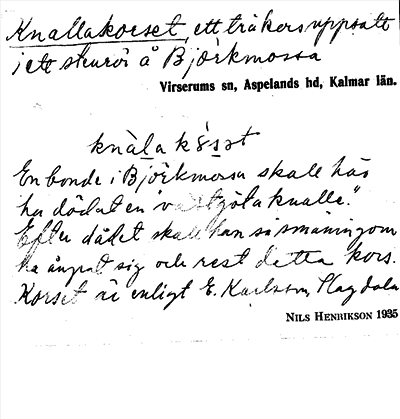 Knallakorset, ett träkors uppsatt
i ett stenrör å Björkmossa
Virserums sn, Aspelands hd, Kalmar län.
knàlakö́sət
En bonde i Björkmossa skall här
ha dödat en "västgötaknalle".
Efter dådet skall han så småningom
ha ångrat sig och rest detta kors.
Korset är enligt E. Karlsson, Hagdala
NILS HENRIKSON 1935